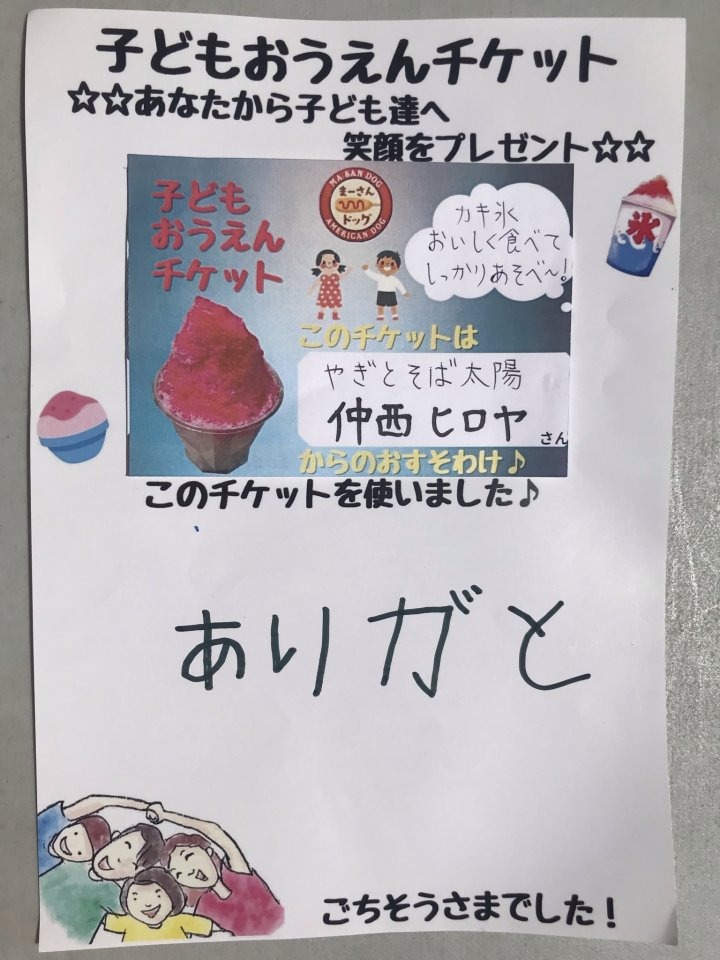 子どもおうえんチケット
☆☆あなたから子ども達へ
笑顔をプレゼント☆☆
子ども
おうえん
チケット
MA SAN DOG
まーさん
ドッグ
AMERICAN DOG
カキ氷
おいしく食べて
しっかりあそべ〜!
氷
このチケットは
やぎとそば太陽
仲西 ヒロヤ さん
からのおすそわけ♪
このチケットを使いました♪
ありガと
ごちそうさまでした!